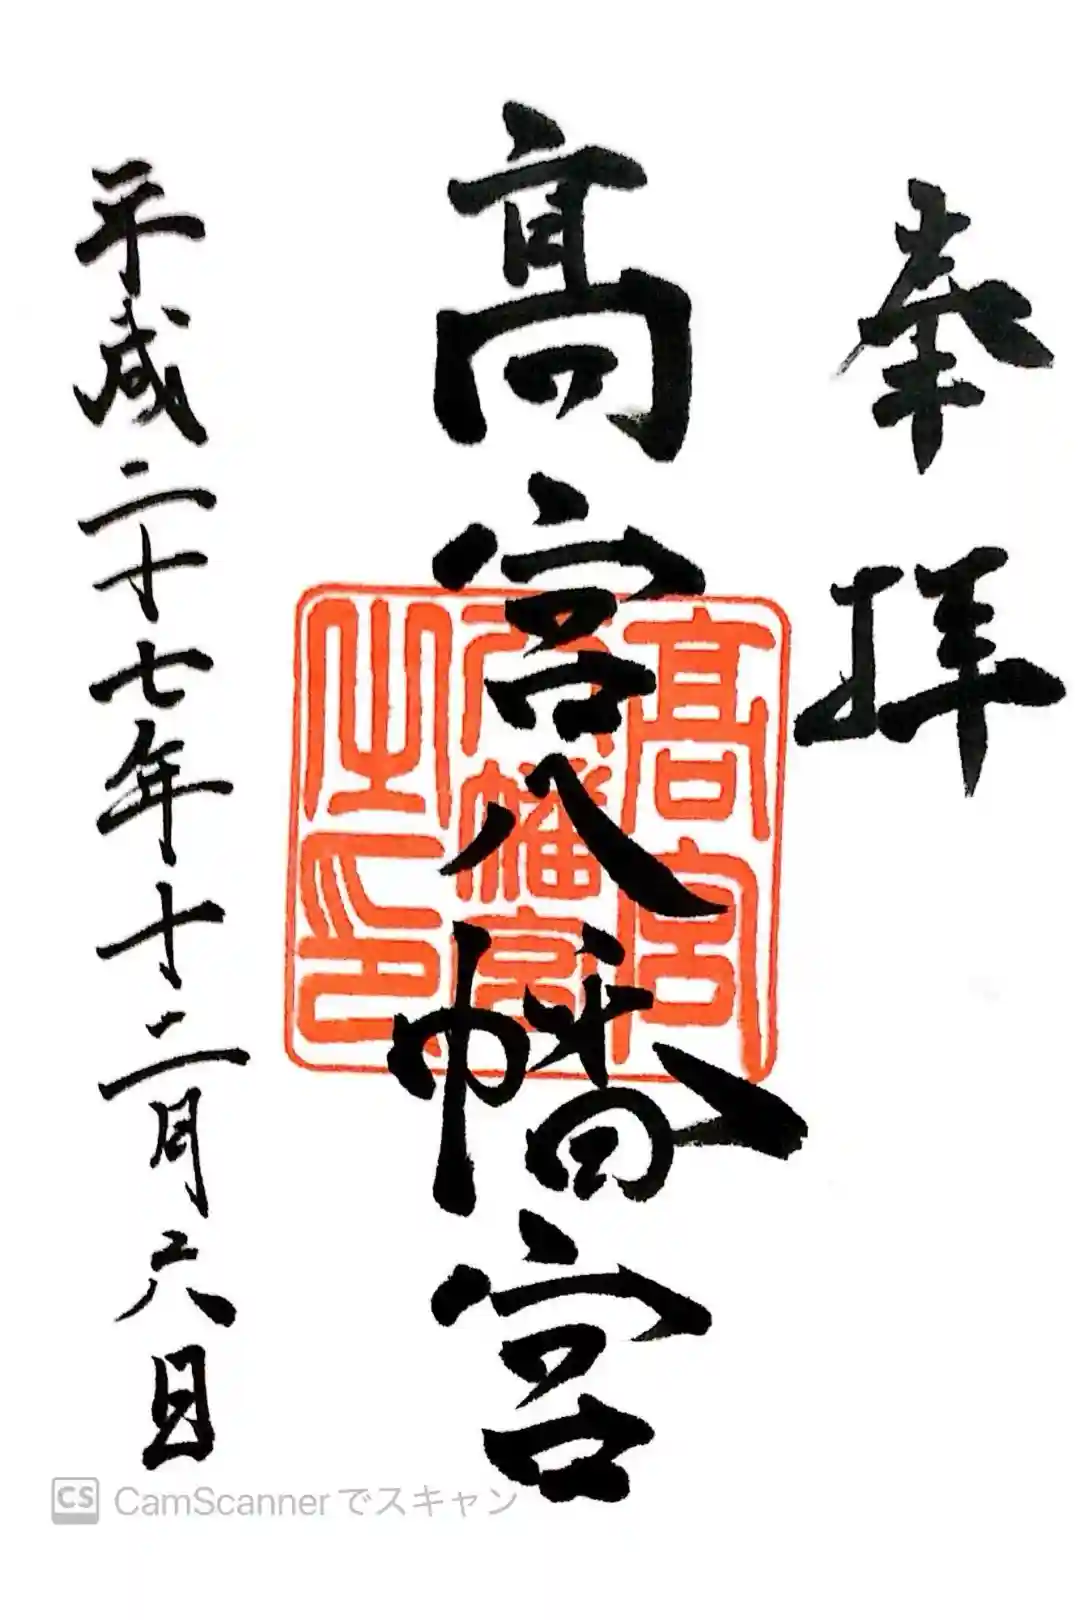 奉拝
髙宮八幡宮
髙宮
八幡宮
之印
平成二十七年十二月六日
CS CamScannerでスキャン